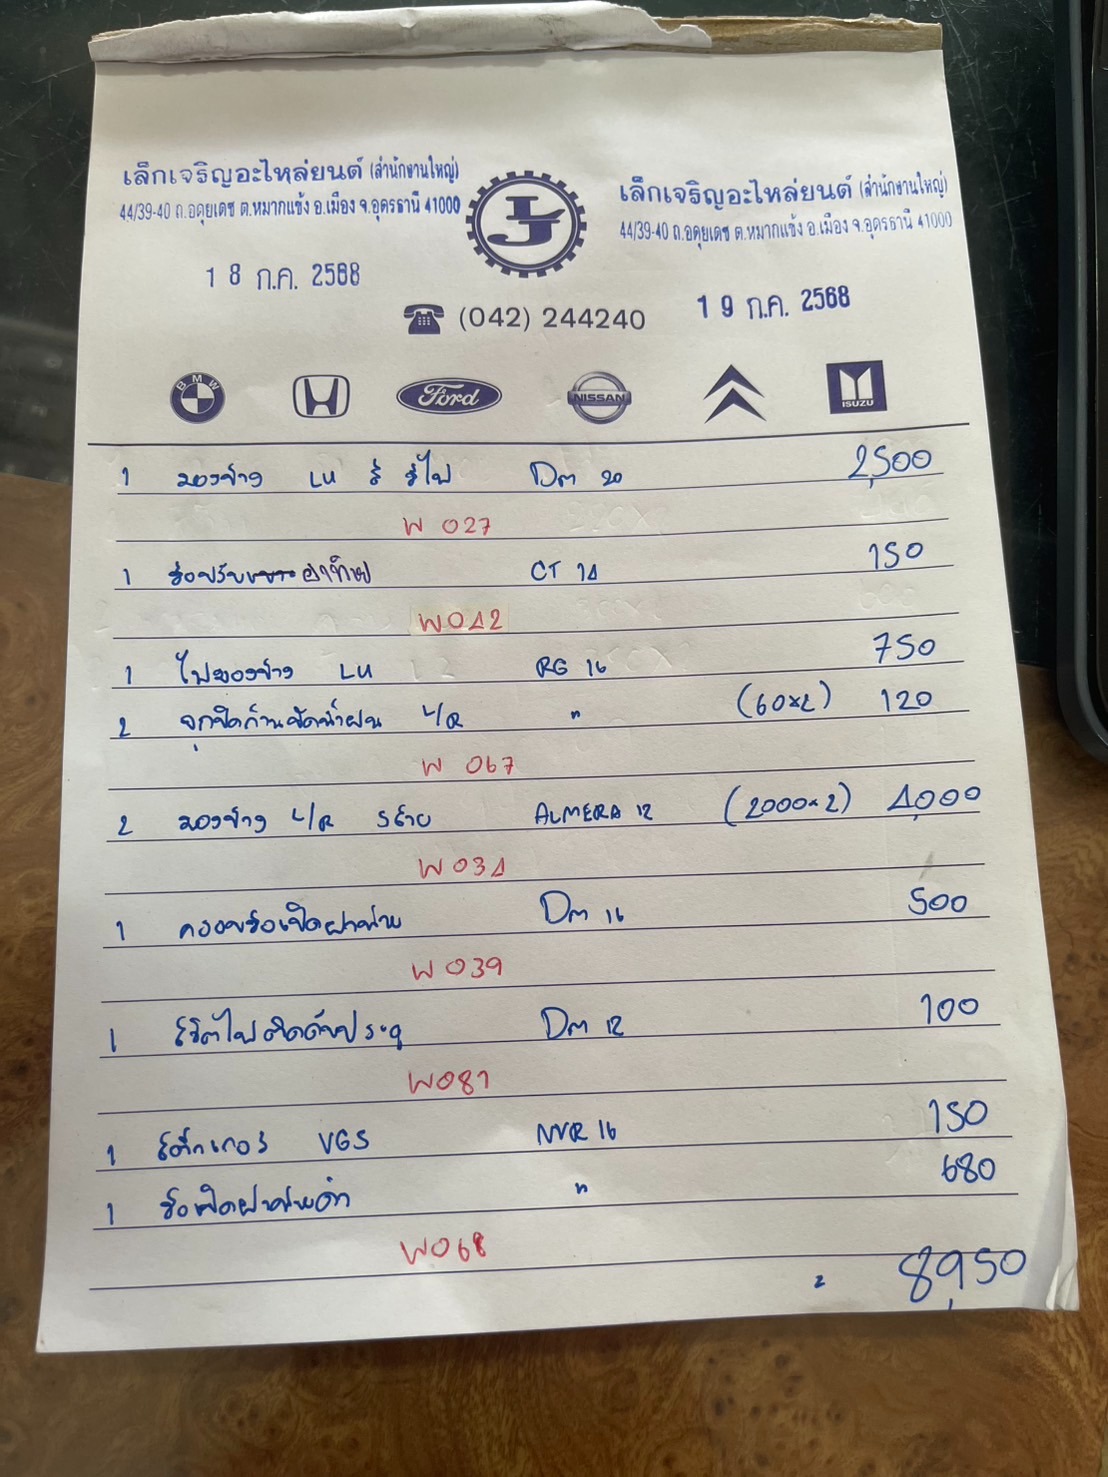 เล็กเจริญอะไหล่ยนต์ (สำนักงานใหญ่)
44/39-40 ถ.อดุยเดช ต.หมากแข้ง อ.เมือง จ.อุดรธานี 41000
18 ก.ค. 2568
เล็กเจริญอะไหล่ยนต์ (สำนักงานใหญ่)
44/39-40 ถ.อดุยเดช ต.หมากแข้ง อ.เมือง จ.อุดรธานี 41000
19 ก.ค. 2568
(042) 244240
BMW Ford NISSAN ISUZU
1 มองข้าง LH Dm 20 2,500
W 027
1 CT 14 150
W042
1 ไฟมองข้าง LH RG 16 750
2 จุกปิดก้านปัดน้ำฝน L/R " (60x2) 120
W 067
2 มองข้าง L/R 5สาย ALMERA 12 (2000x2) 4,000
W034
1 ครอบมือเปิดฝาท้าย Dm 16 500
W 039
1 Dm 12 100
W081
1 สติ๊กเกอร์ VGS NVR 16 150
1 มือเปิดฝาท้ายดำ " 680
W068
8,950